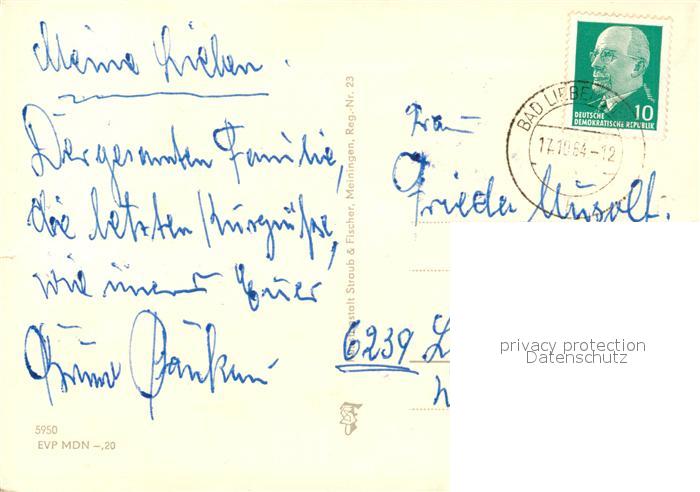 Meine Lieben.
Der gesamten Familie,
die letzten Kurgrüße,
wie immer Euer
5950
EVP MDN –,20
Straub & Fischer, Meiningen, Reg.-Nr. 23
10
DEUTSCHE
DEMOKRATISCHE REPUBLIK
BAD LIEBE
17.10.64-12
Frau
Frieda
6239 L
privacy protection
Datenschutz